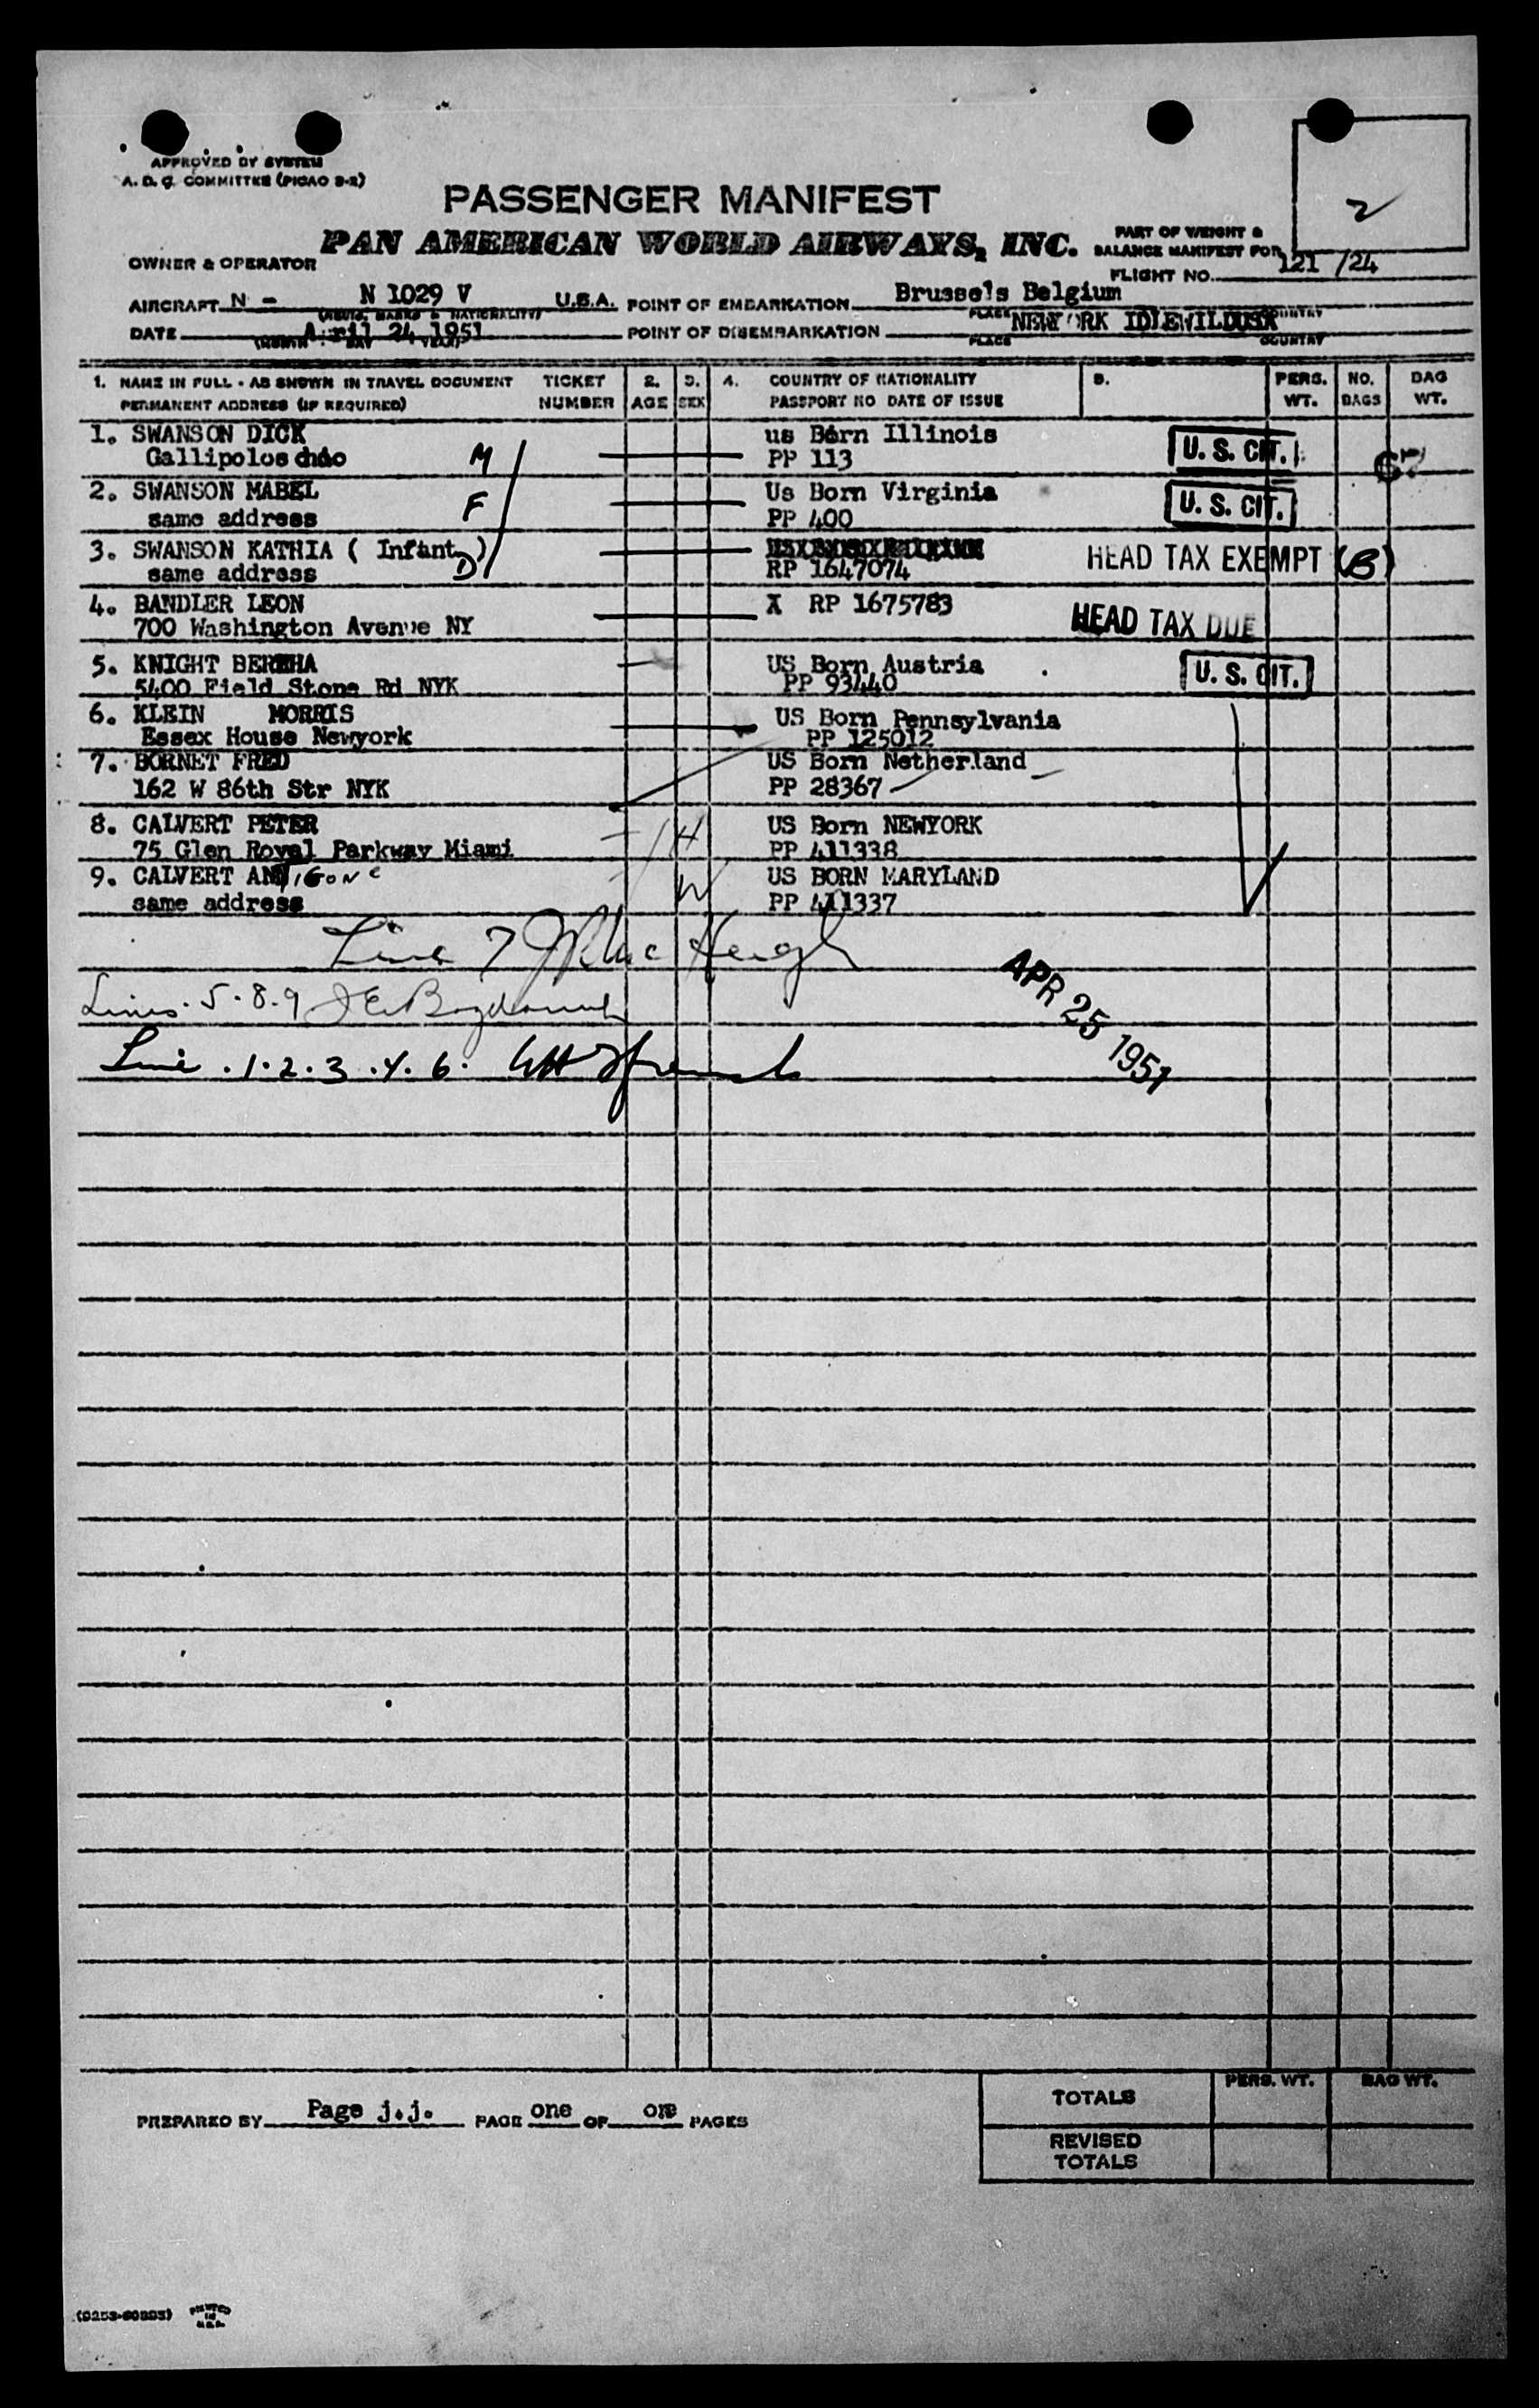 APPROVED BY SYSTEM
A. D. C. COMMITTEE (PICAO 9-2)
PASSENGER MANIFEST
2
PAN AMERICAN WORLD AIRWAYS, INC.
PART OF WEIGHT &
BALANCE MANIFEST FOR
OWNER & OPERATOR
FLIGHT NO. 121 /24
AIRCRAFT N - N 1029 V U.S.A. POINT OF EMBARKATION Brussels Belgium
(REGIS. MARKS & NATIONALITY) PLACE COUNTRY
DATE April 24 1951 POINT OF DISEMBARKATION NEW YORK IDLEWILD USA
(MONTH DAY YEAR) PLACE COUNTRY
1. NAME IN FULL - AS SHOWN IN TRAVEL DOCUMENT TICKET 2. 3. 4. COUNTRY OF NATIONALITY 5. PERS. NO. BAG
PERMANENT ADDRESS (IF REQUIRED) NUMBER AGE SEX PASSPORT NO DATE OF ISSUE WT. BAGS WT.
1. SWANSON DICK us Born Illinois U. S. CIT.
Gallipolos M PP 113
2. SWANSON MABEL Us Born Virginia U. S. CIT.
same address F PP 400
3. SWANSON KATHIA ( Infant ) HEAD TAX EXEMPT (B)
same address D RP 1647074
4. BANDLER LEON X RP 1675783 HEAD TAX DUE
700 Washington Avenue NY
5. KNIGHT BERTHA US Born Austria U. S. CIT.
5400 Field Stone Rd NYK PP 93440
6. KLEIN MORRIS US Born Pennsylvania
Essex House Newyork PP 125012
7. BORNET FRED US Born Netherland
162 W 86th Str NYK PP 28367
8. CALVERT PETER H US Born NEWYORK
75 Glen Royal Parkway Miami PP 411338
9. CALVERT ANTIGONE W US BORN MARYLAND
same address PP 411337
Line 7
Lines. 5. 8. 9
APR 25 1951
Line . 1. 2. 3 . 4. 6.
PREPARED BY Page j.j. PAGE one OF one PAGES
TOTALS PERS. WT. BAG WT.
REVISED
TOTALS
PRINTED
IN
U.S.A.